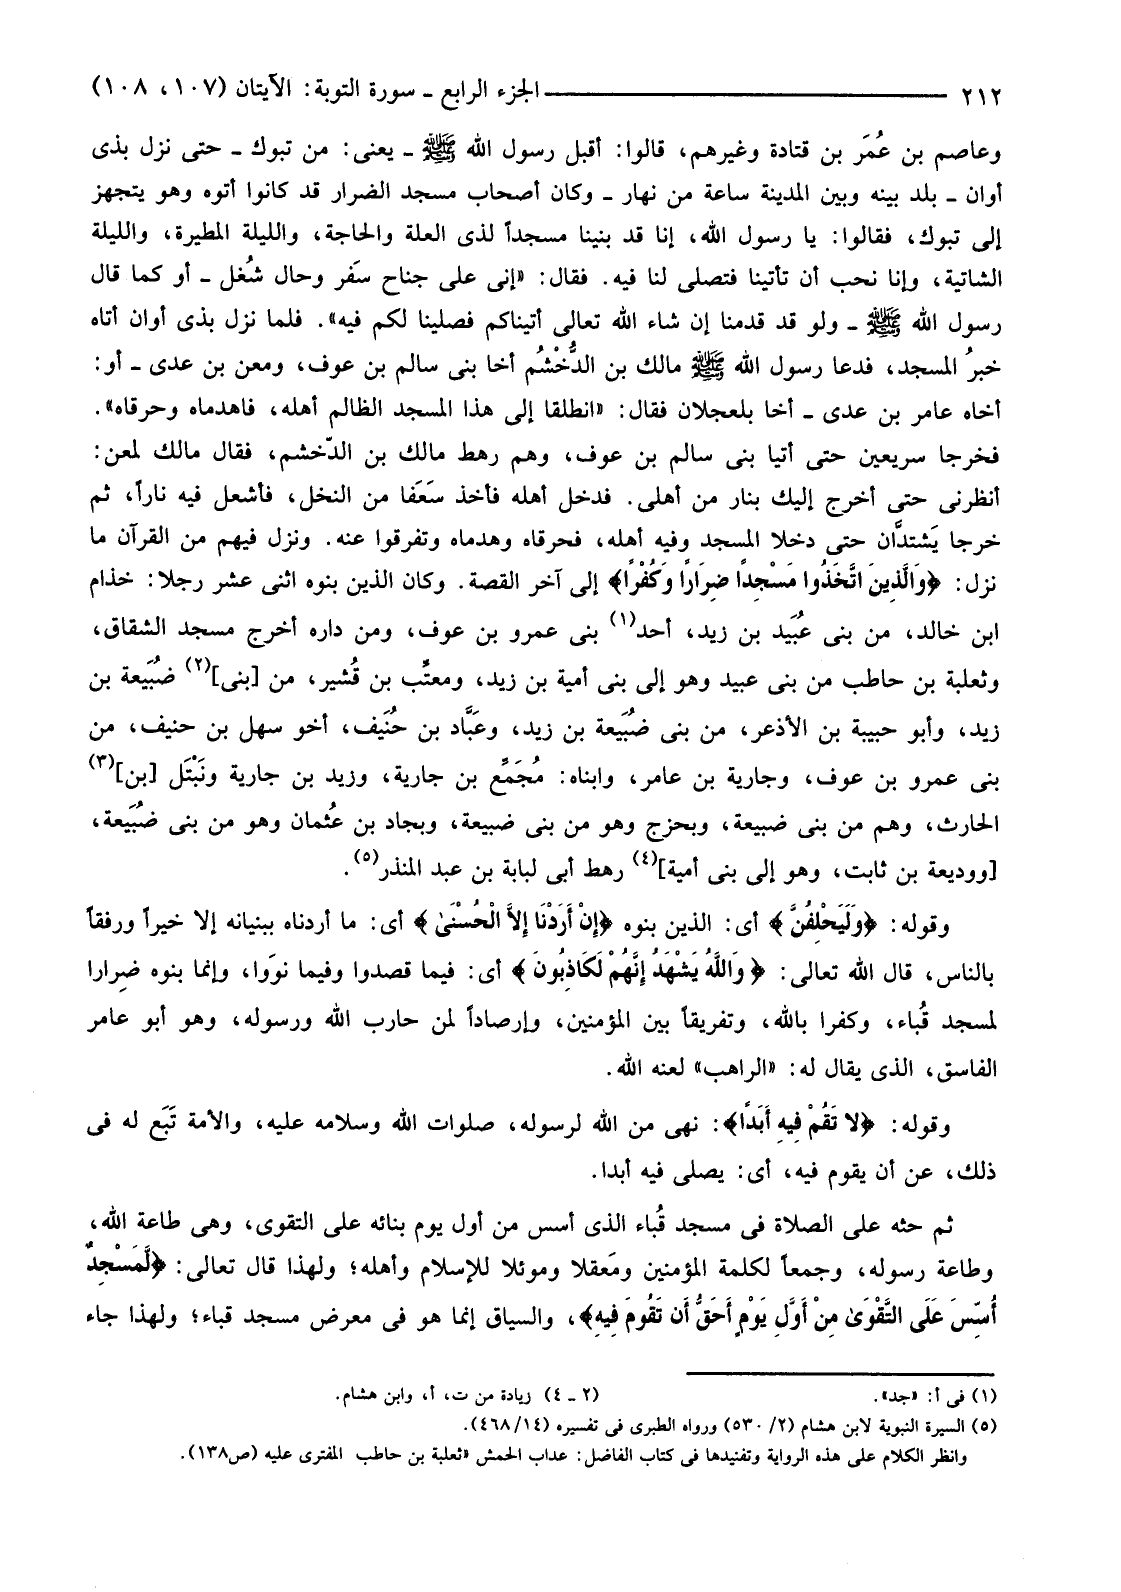 ٢١٢ ــــــــــــــــــ الجزء الرابع ـ سورة التوبة: الآيتان (١٠٧، ١٠٨)
وعاصم بن عُمَر بن قتادة وغيرهم، قالوا: أقبل رسول الله ﷺ ـ يعنى: من تبوك ـ حتى نزل بذى
أوان ـ بلد بينه وبين المدينة ساعة من نهار ـ وكان أصحاب مسجد الضرار قد كانوا أتوه وهو يتجهز
إلى تبوك، فقالوا: يا رسول الله، إنا قد بنينا مسجداً لذى العلة والحاجة، والليلة المطيرة، والليلة
الشاتية، وإنا نحب أن تأتينا فتصلى لنا فيه. فقال: «إنى على جناح سَفر وحال شُغل ـ أو كما قال
رسول الله ﷺ ـ ولو قد قدمنا إن شاء الله تعالى أتيناكم فصلينا لكم فيه». فلما نزل بذى أوان أتاه
خبرُ المسجد، فدعا رسول الله ﷺ مالك بن الدُّخْشُم أخا بنى سالم بن عوف، ومعن بن عدى ـ أو:
أخاه عامر بن عدى ـ أخا بلعجلان فقال: «انطلقا إلى هذا المسجد الظالم أهله، فاهدماه وحرقاه».
فخرجا سريعين حتى أتيا بنى سالم بن عوف، وهم رهط مالك بن الدّخشم، فقال مالك لمعن:
أنظرنى حتى أخرج إليك بنار من أهلى. فدخل أهله فأخذ سَعَفا من النخل، فأشعل فيه ناراً، ثم
خرجا يَشتدَّان حتى دخلا المسجد وفيه أهله، فحرقاه وهدماه وتفرقوا عنه. ونزل فيهم من القرآن ما
نزل: ﴿وَالَّذِينَ اتَّخَذُوا مَسْجِدًا ضِرَارًا وَكُفْرًا﴾ إلى آخر القصة. وكان الذين بنوه اثنى عشر رجلا: خذام
ابن خالد، من بنى عُبَيد بن زيد، أحد(١) بنى عمرو بن عوف، ومن داره أخرج مسجد الشقاق،
وثعلبة بن حاطب من بنى عبيد وهو إلى بنى أمية بن زيد، ومعتِّب بن قُشير، من [بنى](٢) ضُبَيعة بن
زيد، وأبو حبيبة بن الأذعر، من بنى ضُبَيعة بن زيد، وعَبَّاد بن حُنَيف، أخو سهل بن حنيف، من
بنى عمرو بن عوف، وجارية بن عامر، وابناه: مُجَمِّع بن جارية، وزيد بن جارية ونَبْتَل [بن](٣)
الحارث، وهم من بنى ضبيعة، وبحزج وهو من بنى ضبيعة، وبجاد بن عُثمان وهو من بنى ضُبَيعة،
[ووديعة بن ثابت، وهو إلى بنى أمية](٤) رهط أبى لبابة بن عبد المنذر(٥).
وقوله: ﴿وَلَيَحْلِفُنَّ﴾ أى: الذين بنوه ﴿إِنْ أَرَدْنَا إِلاَّ الْحُسْنَىٰ﴾ أى: ما أردناه ببنيانه إلا خيراً ورفقاً
بالناس، قال الله تعالى: ﴿وَاللَّهُ يَشْهَدُ إِنَّهُمْ لَكَاذِبُونَ﴾ أى: فيما قصدوا وفيما نوَوا، وإنما بنوه ضِرارا
لمسجد قُباء، وكفرا بالله، وتفريقاً بين المؤمنين، وإرصاداً لمن حارب الله ورسوله، وهو أبو عامر
الفاسق، الذى يقال له: «الراهب» لعنه الله.
وقوله: ﴿لا تَقُمْ فِيهِ أَبَدًا﴾: نهى من الله لرسوله، صلوات الله وسلامه عليه، والأمة تَبَع له فى
ذلك، عن أن يقوم فيه، أى: يصلى فيه أبدا.
ثم حثه على الصلاة فى مسجد قُباء الذى أسس من أول يوم بنائه على التقوى، وهى طاعة الله،
وطاعة رسوله، وجمعاً لكلمة المؤمنين ومَعقلا وموئلا للإسلام وأهله؛ ولهذا قال تعالى: ﴿لَّمَسْجِدٌ
أُسِّسَ عَلَى التَّقْوَىٰ مِنْ أَوَّلِ يَوْمٍ أَحَقُّ أَن تَقُومَ فِيهِ﴾، والسياق إنما هو فى معرض مسجد قباء؛ ولهذا جاء
(١) فى أ: «جد». (٢ ـ ٤) زيادة من ت، أ، وابن هشام.
(٥) السيرة النبوية لابن هشام (٢/ ٥٣٠) ورواه الطبرى فى تفسيره (١٤/ ٤٦٨).
وانظر الكلام على هذه الرواية وتفنيدها فى كتاب الفاضل: عداب الحمش «ثعلبة بن حاطب المفترى عليه (ص١٣٨).